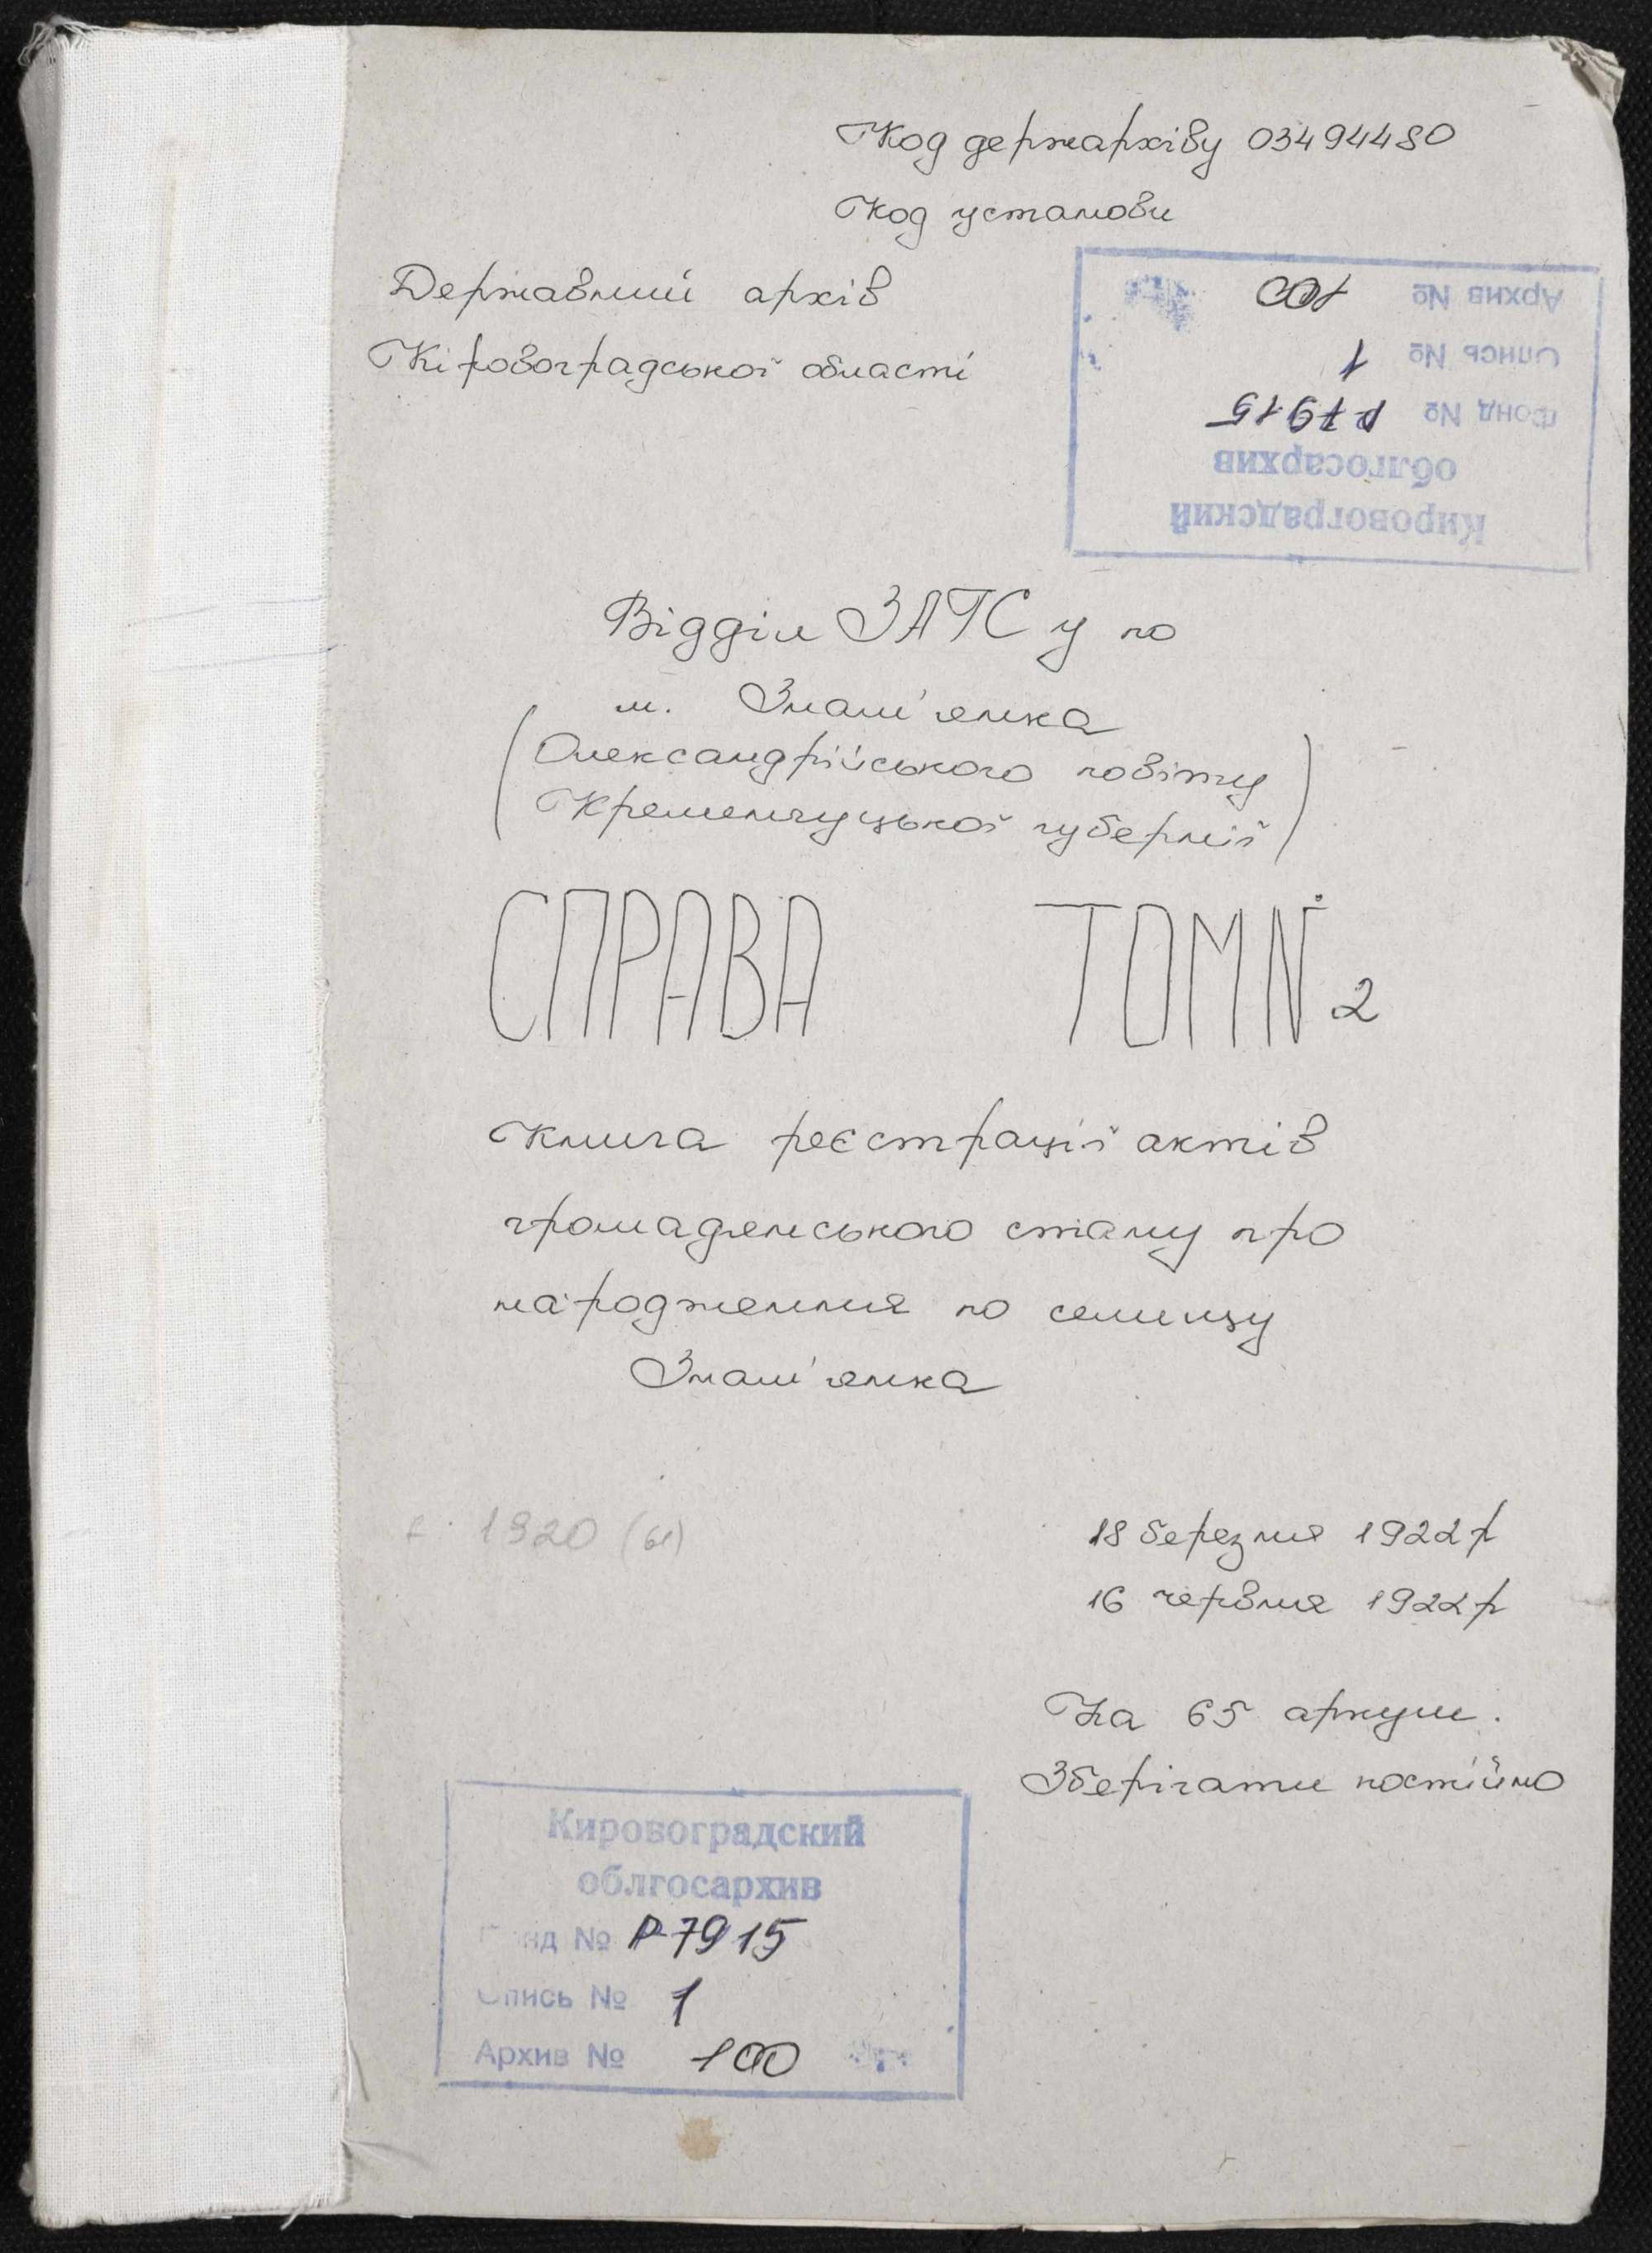 Код держархіву 03494480
Код установи
Державний архів
Кіровоградської області
Кировоградский
облгосархив
Фонд № Р7915
Опись № 1
Архив № 100
Відділ ЗАГСу по
м. Знам'янка
(Олександрійського повіту
Кременчуцької губернії)
СПРАВА ТОМ N 2
Книга реєстрації актів
громадянського стану про
народження по селищу
Знам'янка
1920 (61)
18 березня 1922 р
16 червня 1922 р
На 65 аркуш.
Зберігати постійно
Кировоградский
облгосархив
Фонд № Р-7915
Опись № 1
Архив № 100